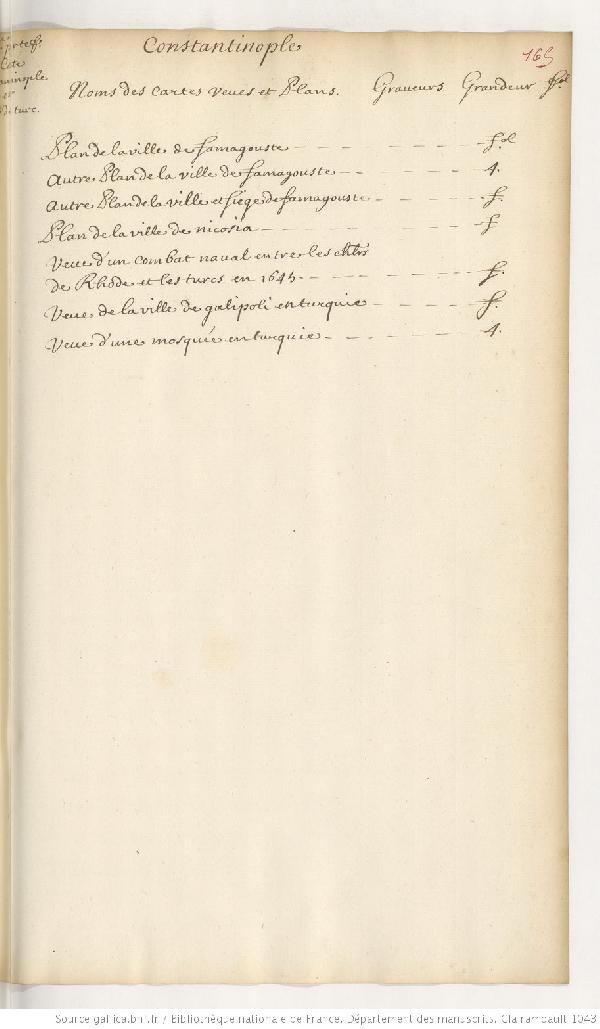 Constantinople
165
Noms des Cartes veues et Plans. Graveurs Grandeur
Plan de la ville de famagouste - - - - - - f.ol
Autre Plan de la ville de famagouste - - - - - - 4.
Autre Plan de la ville et siege de famagouste - - - - - f.
Plan de la ville de nicosia - - - - - - - f
Veue d'un combat naval entre les chlrs
De Rhode et les turcs en 1645 - - - - - - f.
Veue de la ville de galipoli en turquie - - - - - f.
Veue d'une mosquée en turquie - - - - - - 4.
Source gallica.bnf.fr / Bibliothèque nationale de France. Département des manuscrits. Clairambault 1043